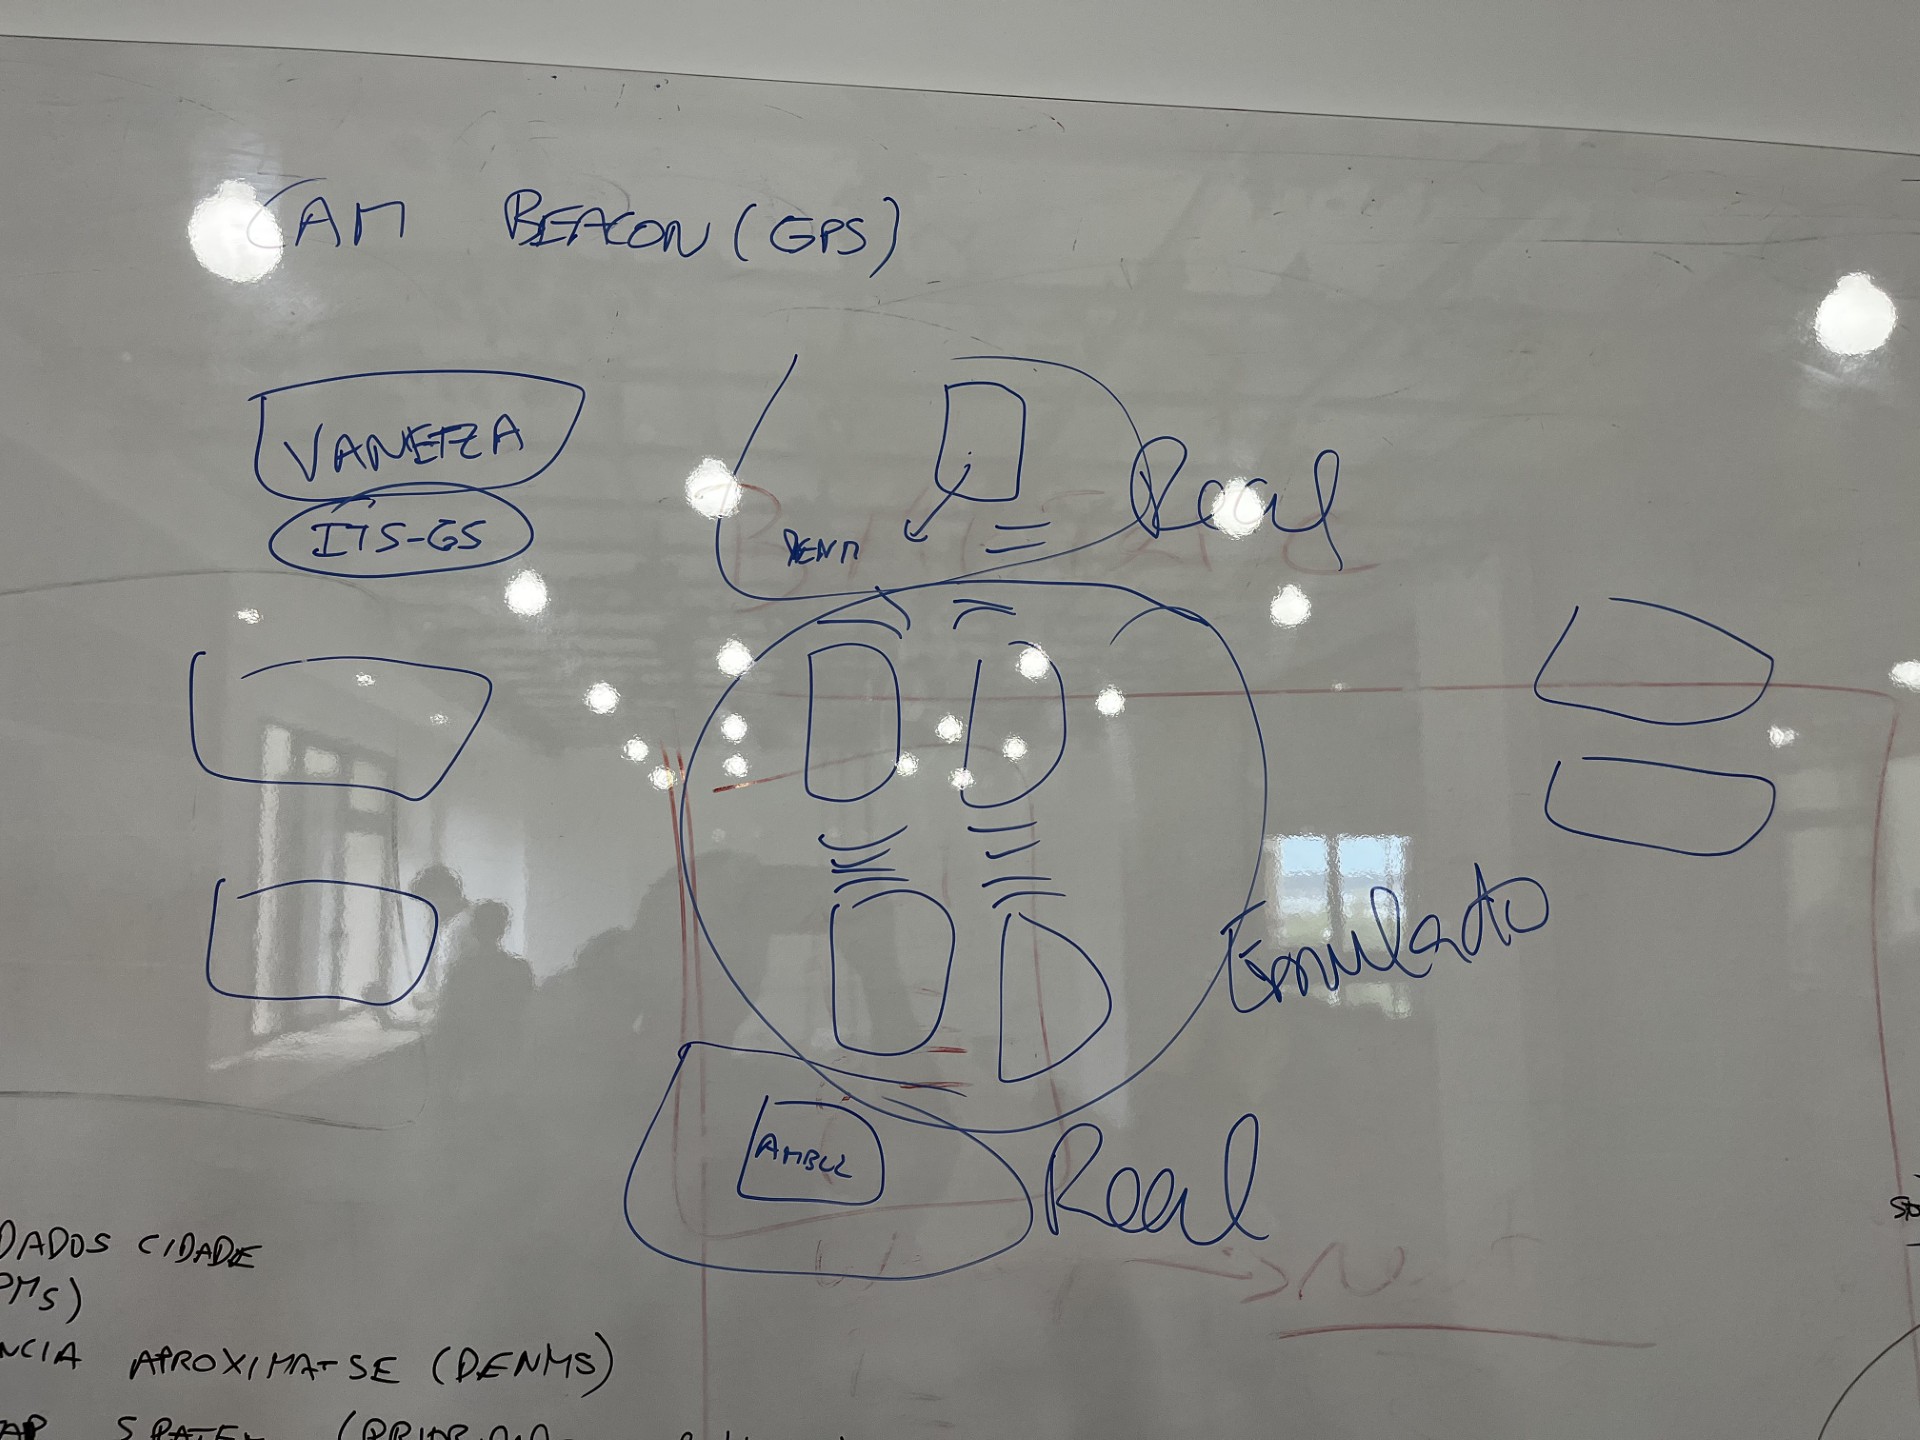 CAM BEACON (GPS)
VANETZA
ITS-G5
DENM
Real
Emulado
AMBUL
Real
DADOS CIDADE
PMS)
NCIA APROXIMA-SE (DENMS)